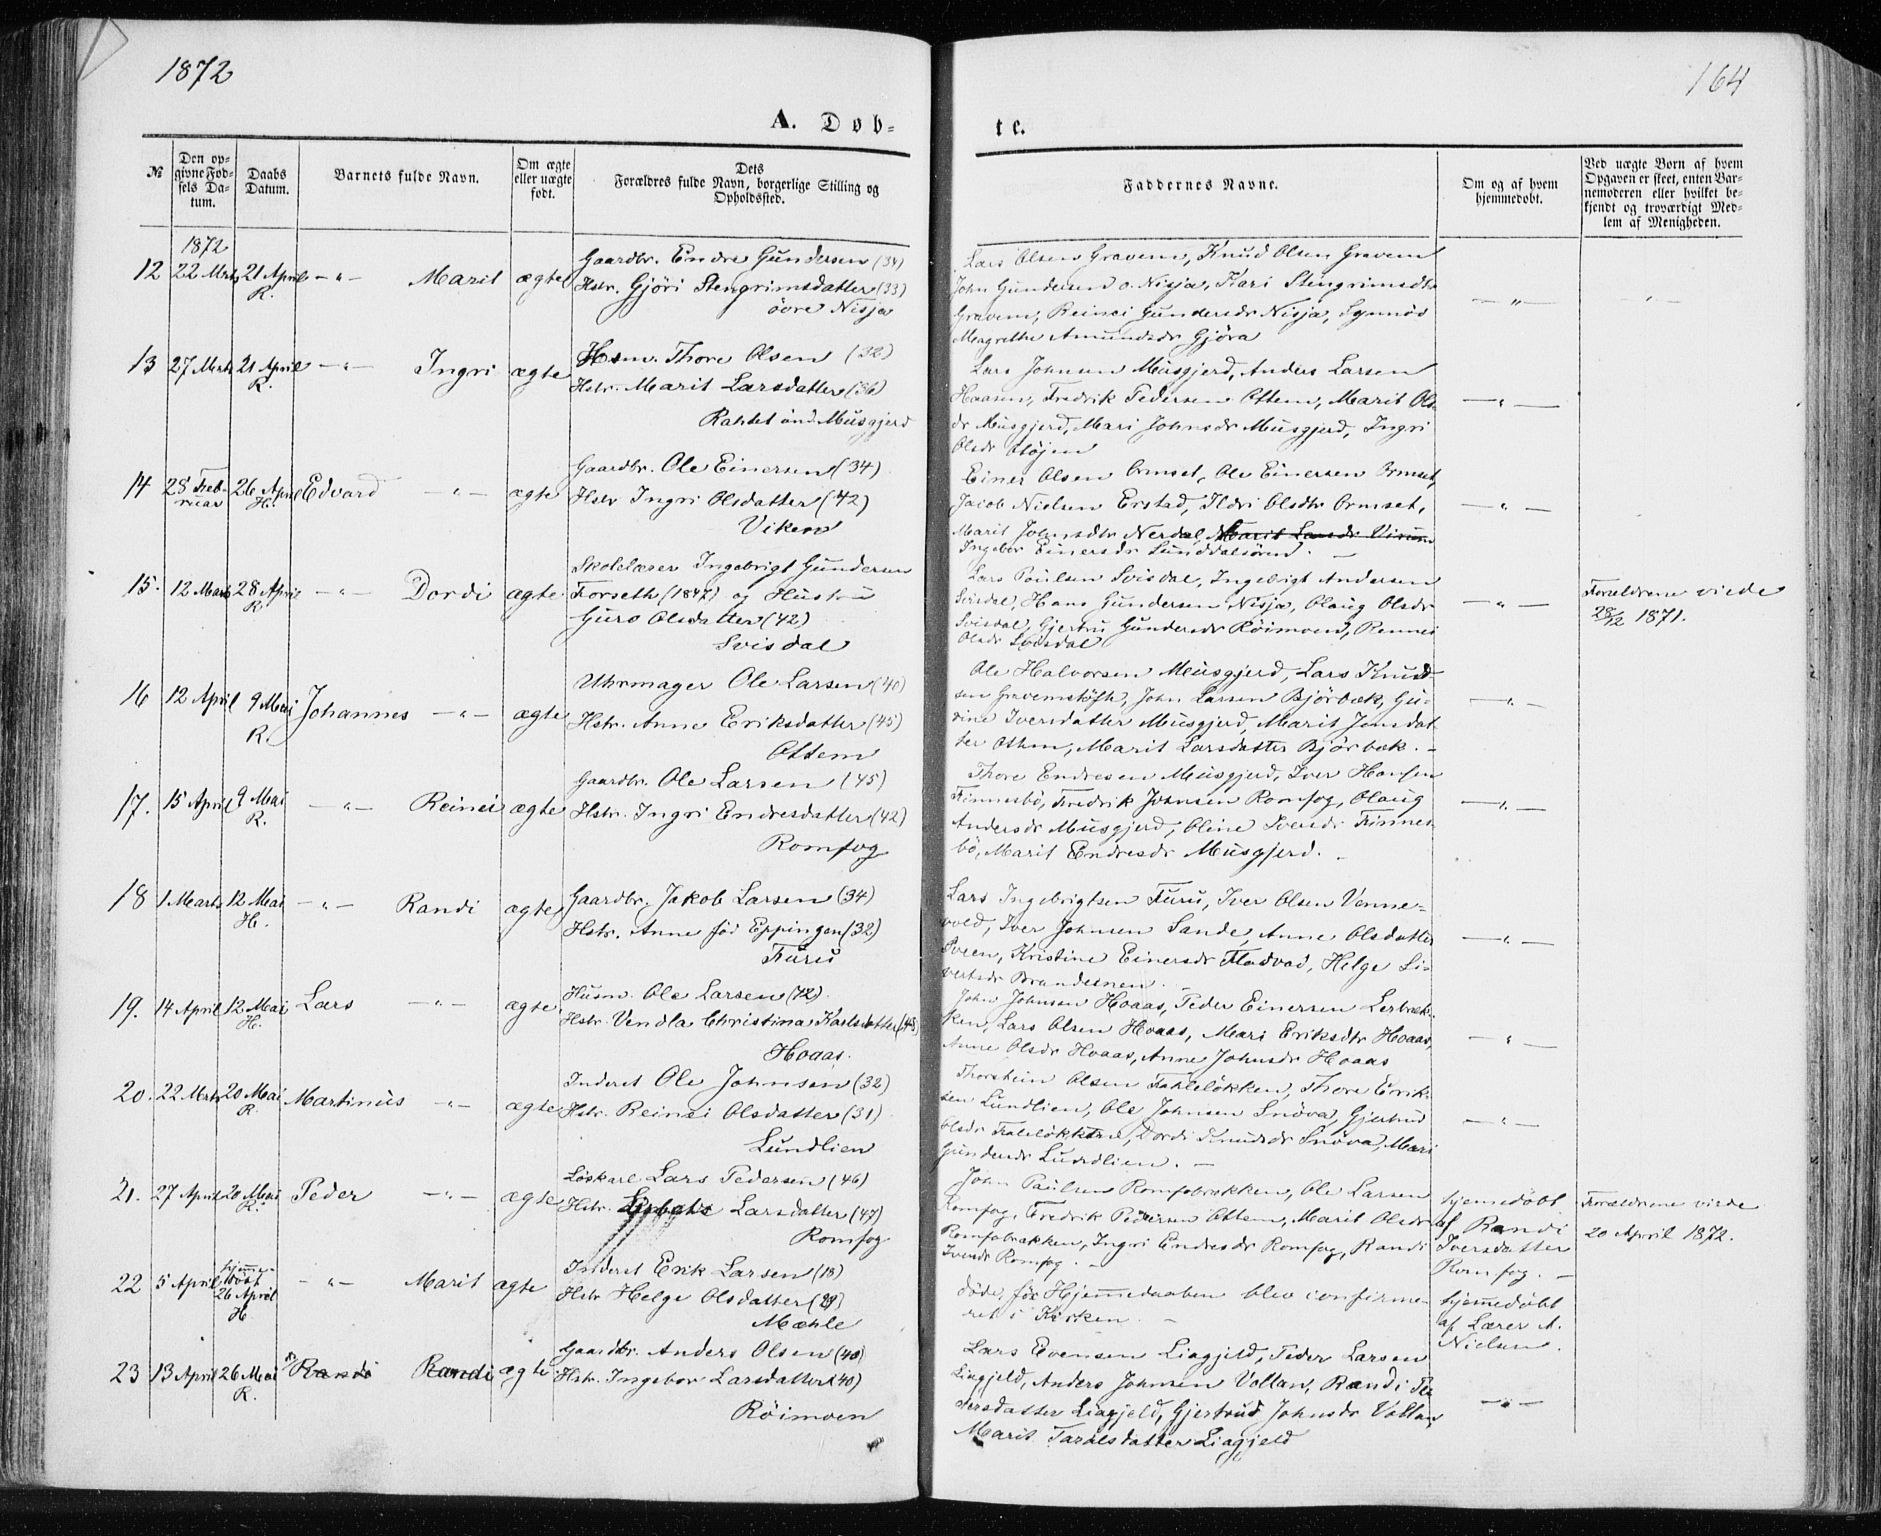 1872
164
A. Døb-
te.
№
Den op-
givne Fød-
sels Da-
tum.
Daabs
Datum.
Barnets fulde Navn.
Om ægte
eller uægte
født.
Dets
Forældres fulde Navn, borgerlige Stilling og
Opholdssted.
Faddernes Navne.
Om og af hvem
hjemmedøbt.
Ved uægte Børn af hvem
Opgaven er skeet, enten Bar-
nemoderen eller hvilket be-
kjendt og troværdigt Med-
lem af Menigheden.
1872
12 22 Mrts 21 April R. —"— Marit ægte
Gaardbr. Endre Gundersen (34)
Hstr. Gjöri Stengrimsdatter (33)
övre Nisja
Lars Olsen Gravem, Knud Olsen Gravem
John Gundersen o. Nisja, Kari Stengrimsdtr
Gravem, Reinei Gundersdr Nisja, Synnöv
Magrethe Amundsdr Gjöra
—"—
"
13 27 Mrts 21 April R. —"— Ingri ægte
Hsm. Thore Olsen (32)
Hstr. Marit Larsdatter (36)
Musgjerd
Lars Johnsen Musgjerd, Anders Larsen
Haasen, Fredrik Pedersen Ottem, Marit Ols-
dr Musgjerd, Mari Johnsdr Musgjerd, Ingri
Olsdr
—"—
14 28 Feb-
ruar 26 April H. Edvard —"— ægte
Gaardbr. Ole Einersen (34)
Hstr Ingri Olsdatter (42)
Viken
Einer Olsen Ormset, Ole Einersen Ormset,
Jacob Nielsen Erstad, Ildri Olsdtr Ormset,
Marit Johnsdtr Nerdal, Marit Larsdr
Ingebor Einersdr Lunddalsören. —
—"—
15. 12 Marts 28 April R. —"— Dordi ægte
Skolelærer Ingebrigt Gundersen
Forseth (1847) og Hustru
Guro Olsdatter (42)
Svisdal
Lars Poulsen Svisdal, Ingebrigt Andersen
Svisdal, Hans Gundersen Nisja, Olaug Olsdr
Svisdal, Gjertru Gundersdr Röimoen, Rennei
Olsdr Svisdal
—"—
Forældrene viede
28/12 1871.
16 12 April 9 Mai R. Johannes —"— ægte
Uhrmager Ole Larsen (40)
Hstr. Anne Eriksdatter (45)
Ottem
Ole Halvorsen Musgjerd, Lars Knud-
sen Gravemstöfth, John Larsen Björbæk, Gu-
rine Iversdatter Musgjerd, Marit Jonsdat-
ter Ottem, Marit Larsdatter Björbæk. —
—"—
17. 15 April 9 Mai R. —"— Reinei ægte
Gaardbr. Ole Larsen (45)
Hstr. Ingri Endresdatter (42)
Romfog
Thore Endresen Musgjerd, Iver Hansen
Finnesbö, Fredrik Johnsen Romfog, Olaug
Andersdr Musgjerd, Oline Iversdr Finnes-
bö, Marit Endresdr Musgjerd. —
—"—
18 1 Marts 12 Mai H. —"— Randi ægte
Gaardbr. Jakob Larsen (34)
Hstr. Anne föd Eppingen (32)
Furu
Lars Ingebrigtsen Furu, Iver Olsen Venne-
vold, Iver Johnsen Sande, Anne Olsdatter
Sveen, Kristine Einersdr Fladvad, Helge Si-
vertsdr Brandesnen. —
—"—
19. 14 April 12 Mai H. Lars —"— ægte
Husm. Ole Larsen (42)
Hstr. Vendla Christina Karlsdatter (48)
Hoaas.
John Johnsen Hoaas, Peder Einersen Lerbæk-
ken, Lars Olsen Hoaas, Mari Eriksdtr Hoaas,
Anne Olsdr Hoaas, Anne Johnsdr Hoaas
—"—
20. 22 Mrts 20 Mai R. Martinus —"— ægte
Inderst Ole Johnsen (32)
Hstr. Reinei Olsdatter (31)
Lundlien
Thorstein Olsen Fahlelökken, Thore Erik-
sen Lundlien, Ole Johnsen Snöva, Gjertrud
Olsdr Falelökken, Dordi Knudsdr Snöva, Mari
Gundersdr Lundlien. —
—"—
21. 27 April 20 Mai R. Peder —"— ægte
Löskarl Lars Pedersen (46)
Hstr. Larsdatter (47)
Romfog
John Paulsen Romfobrækken, Ole Larsen
Romfog, Fredrik Pedersen Ottem, Marit Olsdr
Romfobrækken, Ingri Endresdr Romfog, Randi
Iversdr Romfog. —
hjemedöbt
af Randi
Iversdatter
Romfog. —
Forældrene viede
20 April 1872.
22 5 April hjemme-
döbt
26 April
H. —"— Marit ægte
Inderst Erik Larsen (18)
Hstr Helge Olsdatter (29)
Mæhle
döde, för Hjemmedaaben blev confirme-
ret i Kirken. —
hjemedöbt
af Lærer A.
Nielsen.
23 13 April 26 Mai R. Randi Randi ægte
Gaardbr. Anders Olsen (40)
Hstr. Ingebor Larsdatter (40)
Röimoen
Lars Evensen Liagjeld, Peder Larsen
Liagjeld, Anders Johnsen Vollan, Randi Pe-
dersdatter Liagjeld, Gjertrud Johnsdr Vollan,
Marit Taralsdatter Liagjeld
—"—